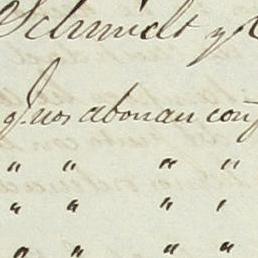 Schmidt y C
Quos abonan conf
" " " "
" " " "
" " " "